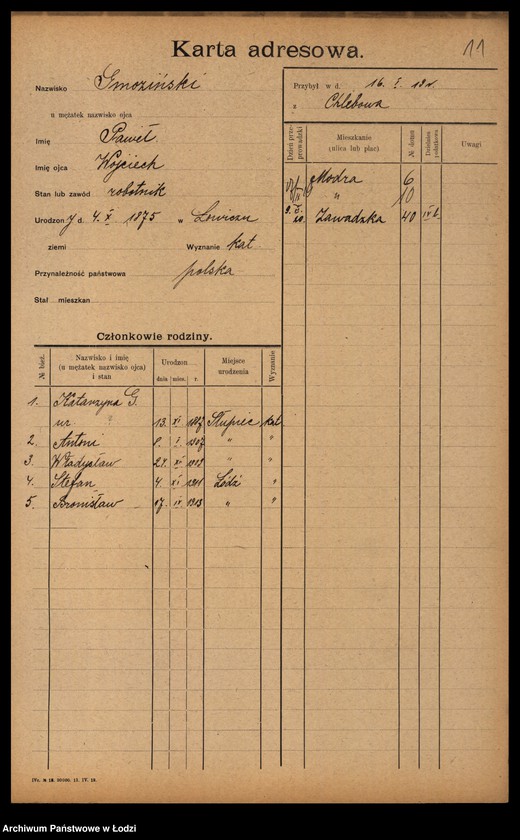 Karta adresowa.
11
Nazwisko Gmoziński
u mężatek nazwisko ojca
Imię Paweł.
Imię ojca Wojciech
Stan lub zawód robotnik
Urodzony d. 4. X. 1875 w Łowiczu
ziemi Wyznanie kat
Przynależność państwowa polska
Stał mieszkan
Przybył w d. 16. I.
z Chlebowa
Dzień przeprowadzki
Mieszkanie (ulica lub plac)
№ domu
Dzielnica podatkowa
Uwagi
Modra 6
" 10
Zawadzka 40 IV b.
Członkowie rodziny.
№ bież.
Nazwisko i imię (u mężatek nazwisko ojca) i stan
Urodzon
dnia mies. r.
Miejsce urodzenia
Wyznanie
1. Katarzyna G.
ur. 13. XI 1887 Słupiec kat
2. Antoni 8. I. 1907 " "
3. Władysław 27. XI 1909 " "
4. Stefan 4. XI 1911 Łódź "
5. Bronisław 17. IV 1913 " "
IVr. № 18. 50000. 15. IV. 19.
Archiwum Państwowe w Łodzi